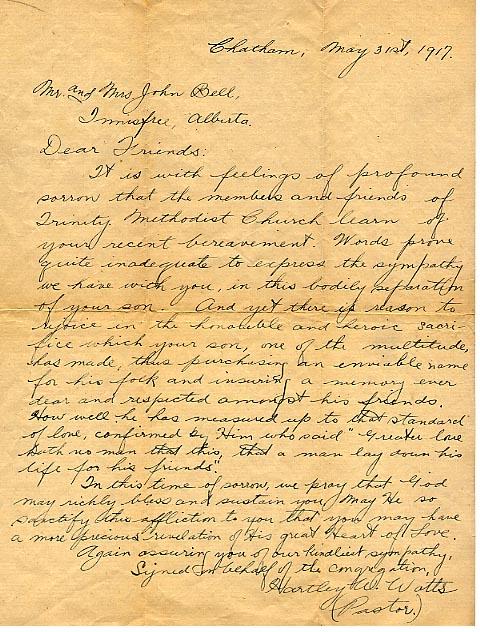 Chatham, May 31st, 1917.
Mr. and Mrs John Bell,
Innisfree, Alberta.
Dear Friends:
It is with feelings of profound
sorrow that the members and friends of
Trinity Methodist Church learn of
your recent bereavement. Words prove
quite inadequate to express the sympathy
we have with you, in this bodily separation
of your son. And yet there is reason to
rejoice in the honorable and heroic sacri-
fice which your son, one of the multitude,
has made, thus purchasing an enviable name
for his folk and insuring a memory ever
dear and respected amongst his friends.
How well he has measured up to that standard
of love, confirmed by Him who said "Greater love
hath no man than this, that a man lay down his
life for his friends".
In this time of sorrow, we pray that God
may richly bless and sustain you. May He so
sanctify this affliction to you that you may have
a more precious revelation of His great Heart of Love.
Again assuring you of our kindliest sympathy,
Signed on behalf of the congregation,
Hartley W. Watts
(Pastor.)